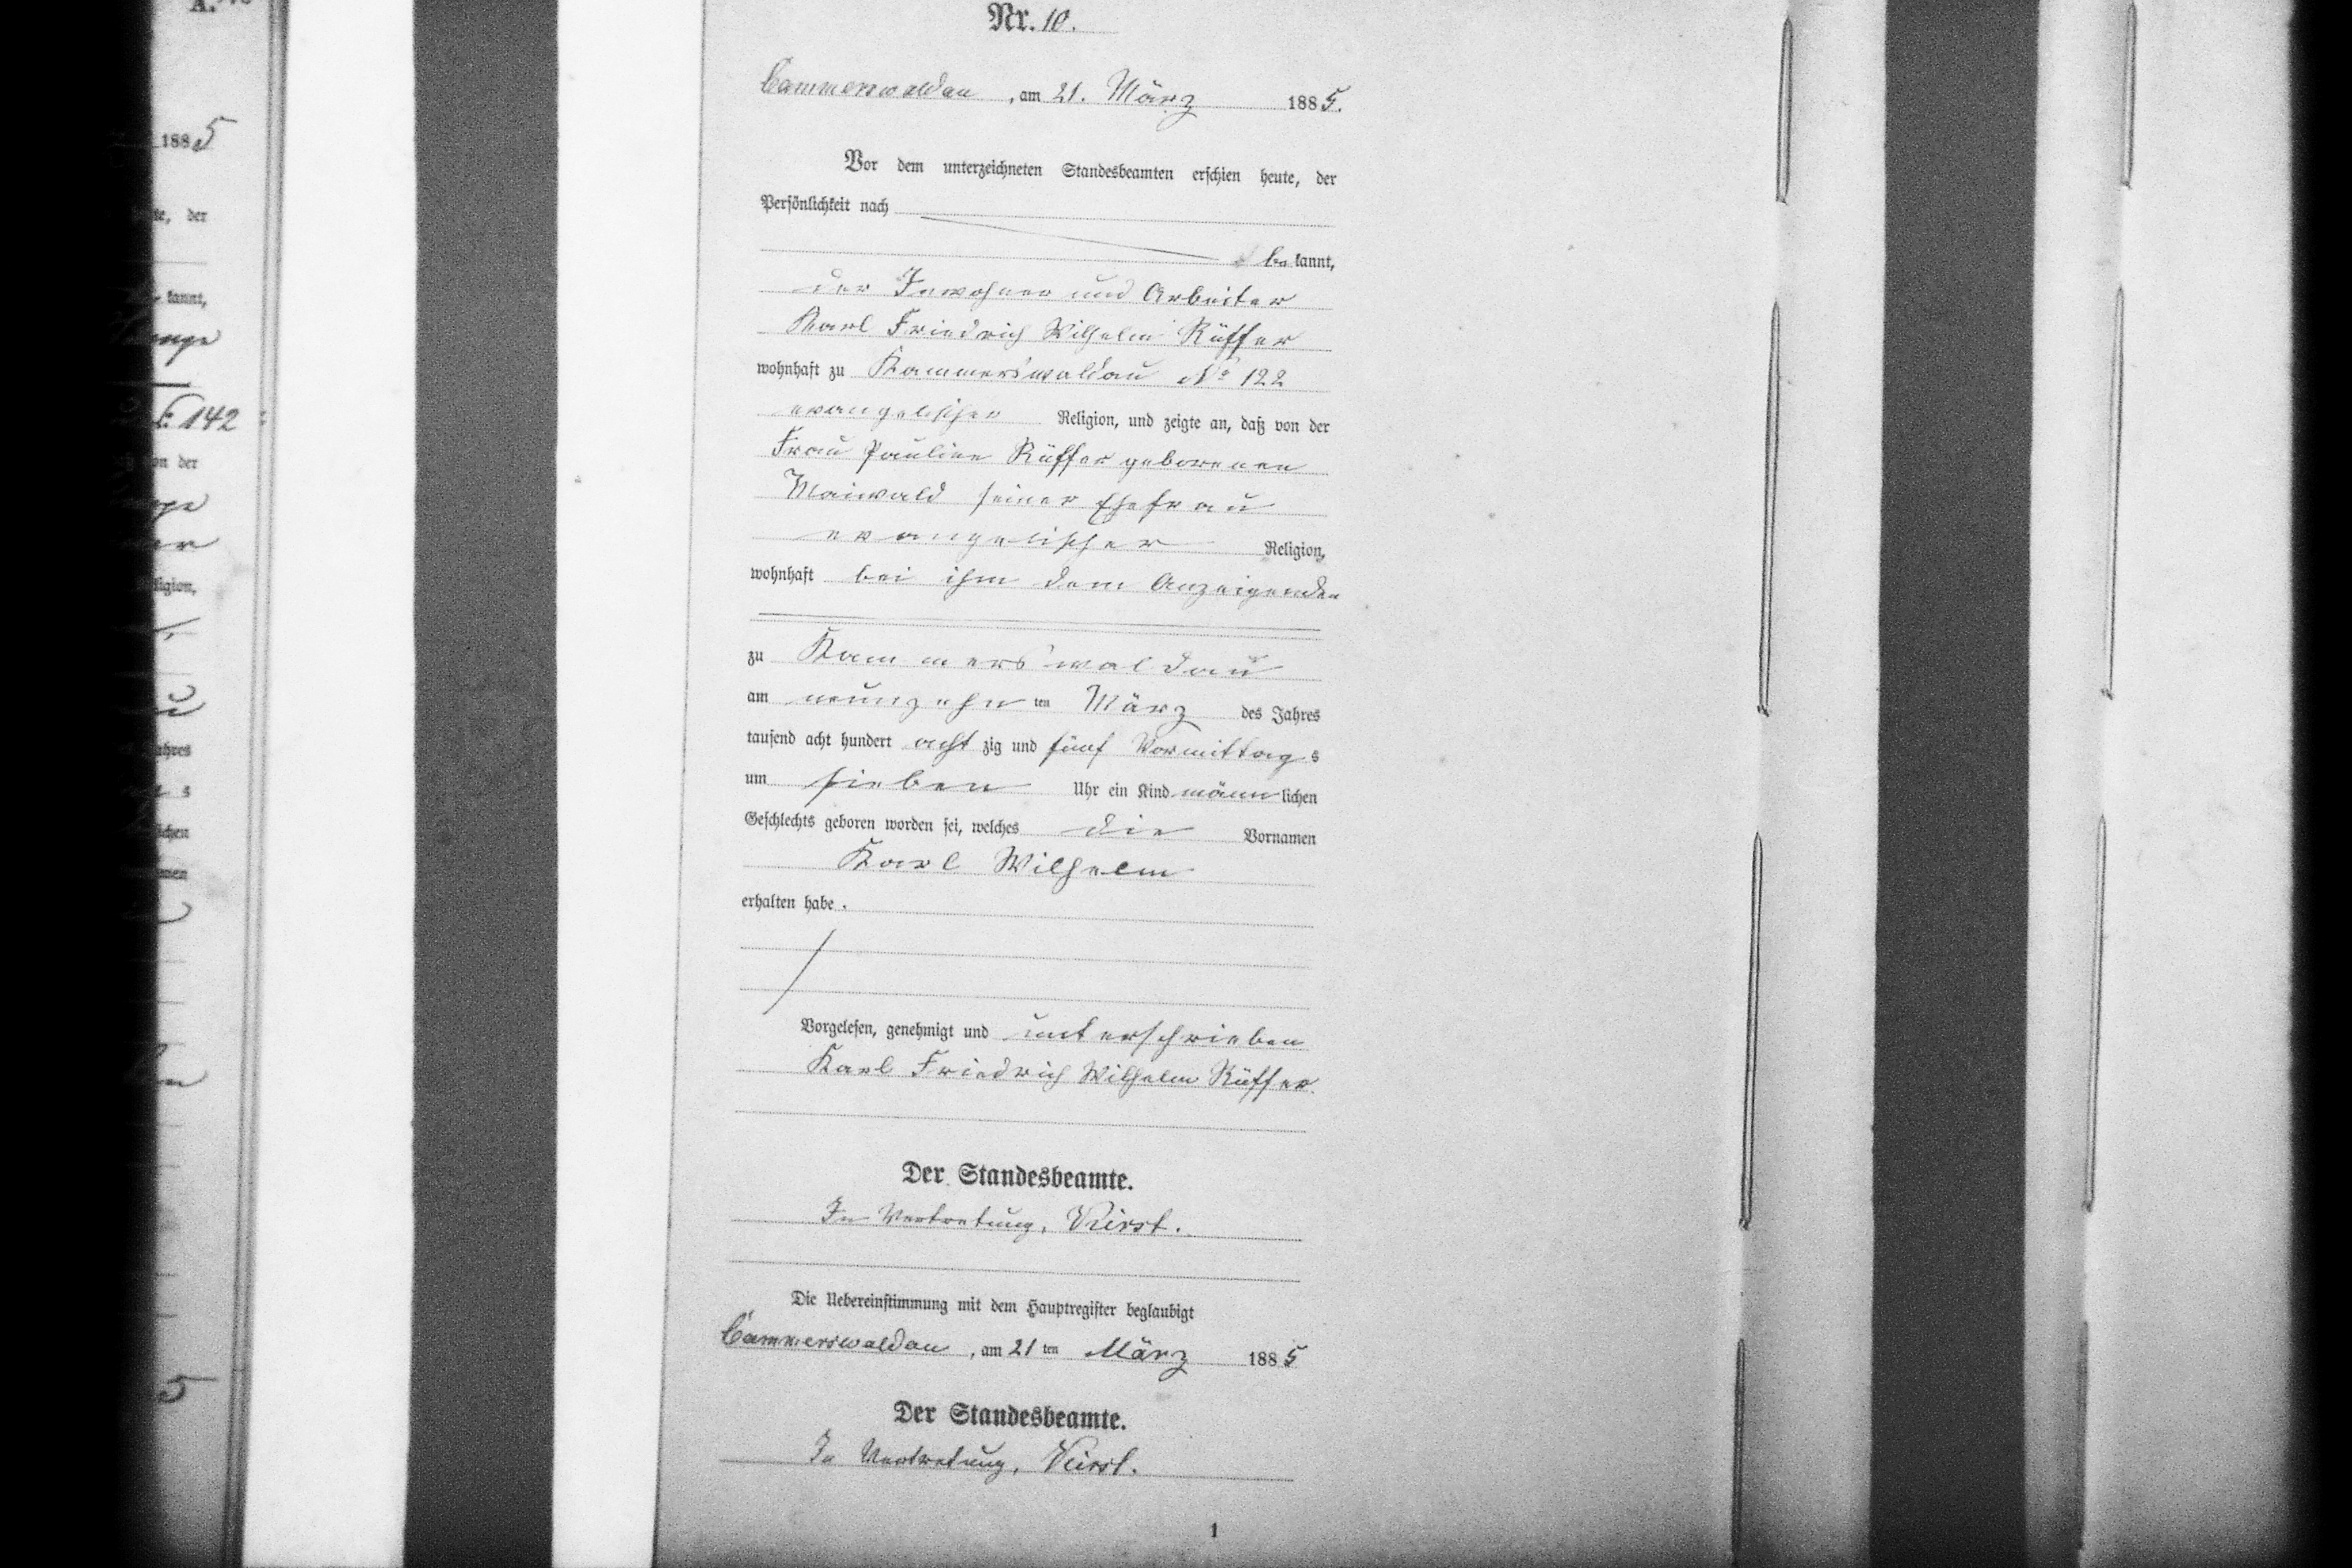 A.
Nr. 10.
Cammerswaldau, am 21. März 1885.
1885
Vor dem unterzeichneten Standesbeamten erschien heute, der
Persönlichkeit nach
bekannt,
der Inwohner und Arbeiter
Karl Friedrich Wilhelm Rüffer
wohnhaft zu Kammerswaldau No 122
142
evangelischer Religion, und zeigte an, daß von der
Frau Pauline Rüffer geborenen
Maiwald seiner Ehefrau
evangelischer Religion,
wohnhaft bei ihm dem Anzeigenden
zu Kammerswaldau
am neunzehnten März des Jahres
tausend acht hundert achtzig und fünf Vormittags
um sieben Uhr ein Kind männlichen
Geschlechts geboren worden sei, welches die Vornamen
Karl Wilhelm
erhalten habe.
Vorgelesen, genehmigt und unterschrieben
Karl Friedrich Wilhelm Rüffer.
Der Standesbeamte.
In Vertretung,
Die Uebereinstimmung mit dem Hauptregister beglaubigt
Cammerswaldau, am 21ten März 1885
5
Der Standesbeamte.
In Vertretung,
1